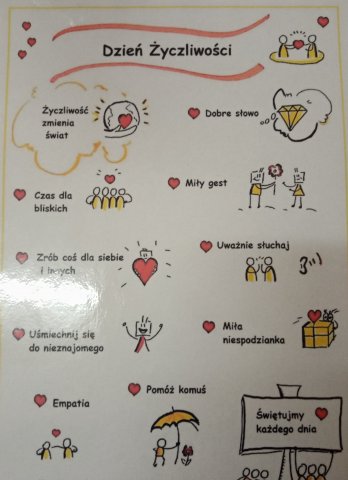 Dzień Życzliwości
Życzliwość
zmienia
świat
Dobre słowo
Czas dla
bliskich
Miły gest
Zrób coś dla siebie
i innych
Uważnie słuchaj
Uśmiechnij się
do nieznajomego
Miła
niespodzianka
Empatia
Pomóż komuś
Świętujmy
każdego dnia